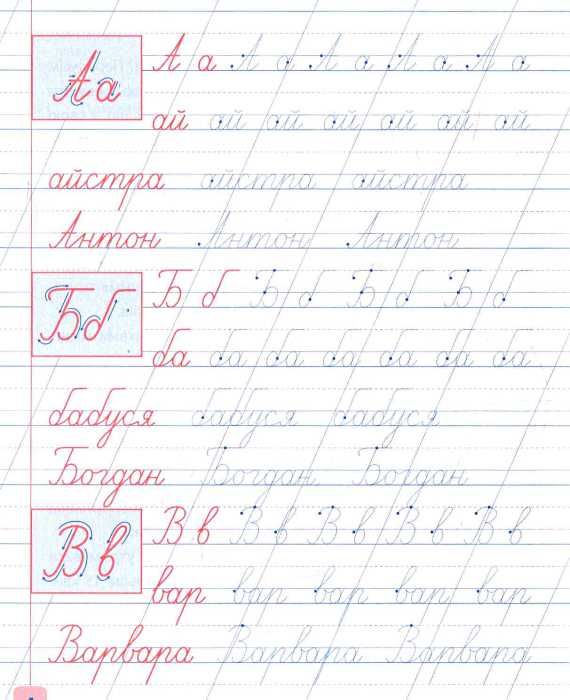 Аа
А а А а А а А а А а
ай ай ай ай ай ай ай
айстра айстра айстра
Антон Антон Антон
Бб
Б б Б б Б б Б б
ба ба ба ба ба ба ба
бабуся бабуся бабуся
Богдан Богдан Богдан
Вв
В в В в В в В в В в
вар вар вар вар вар
Варвара Варвара Варвара